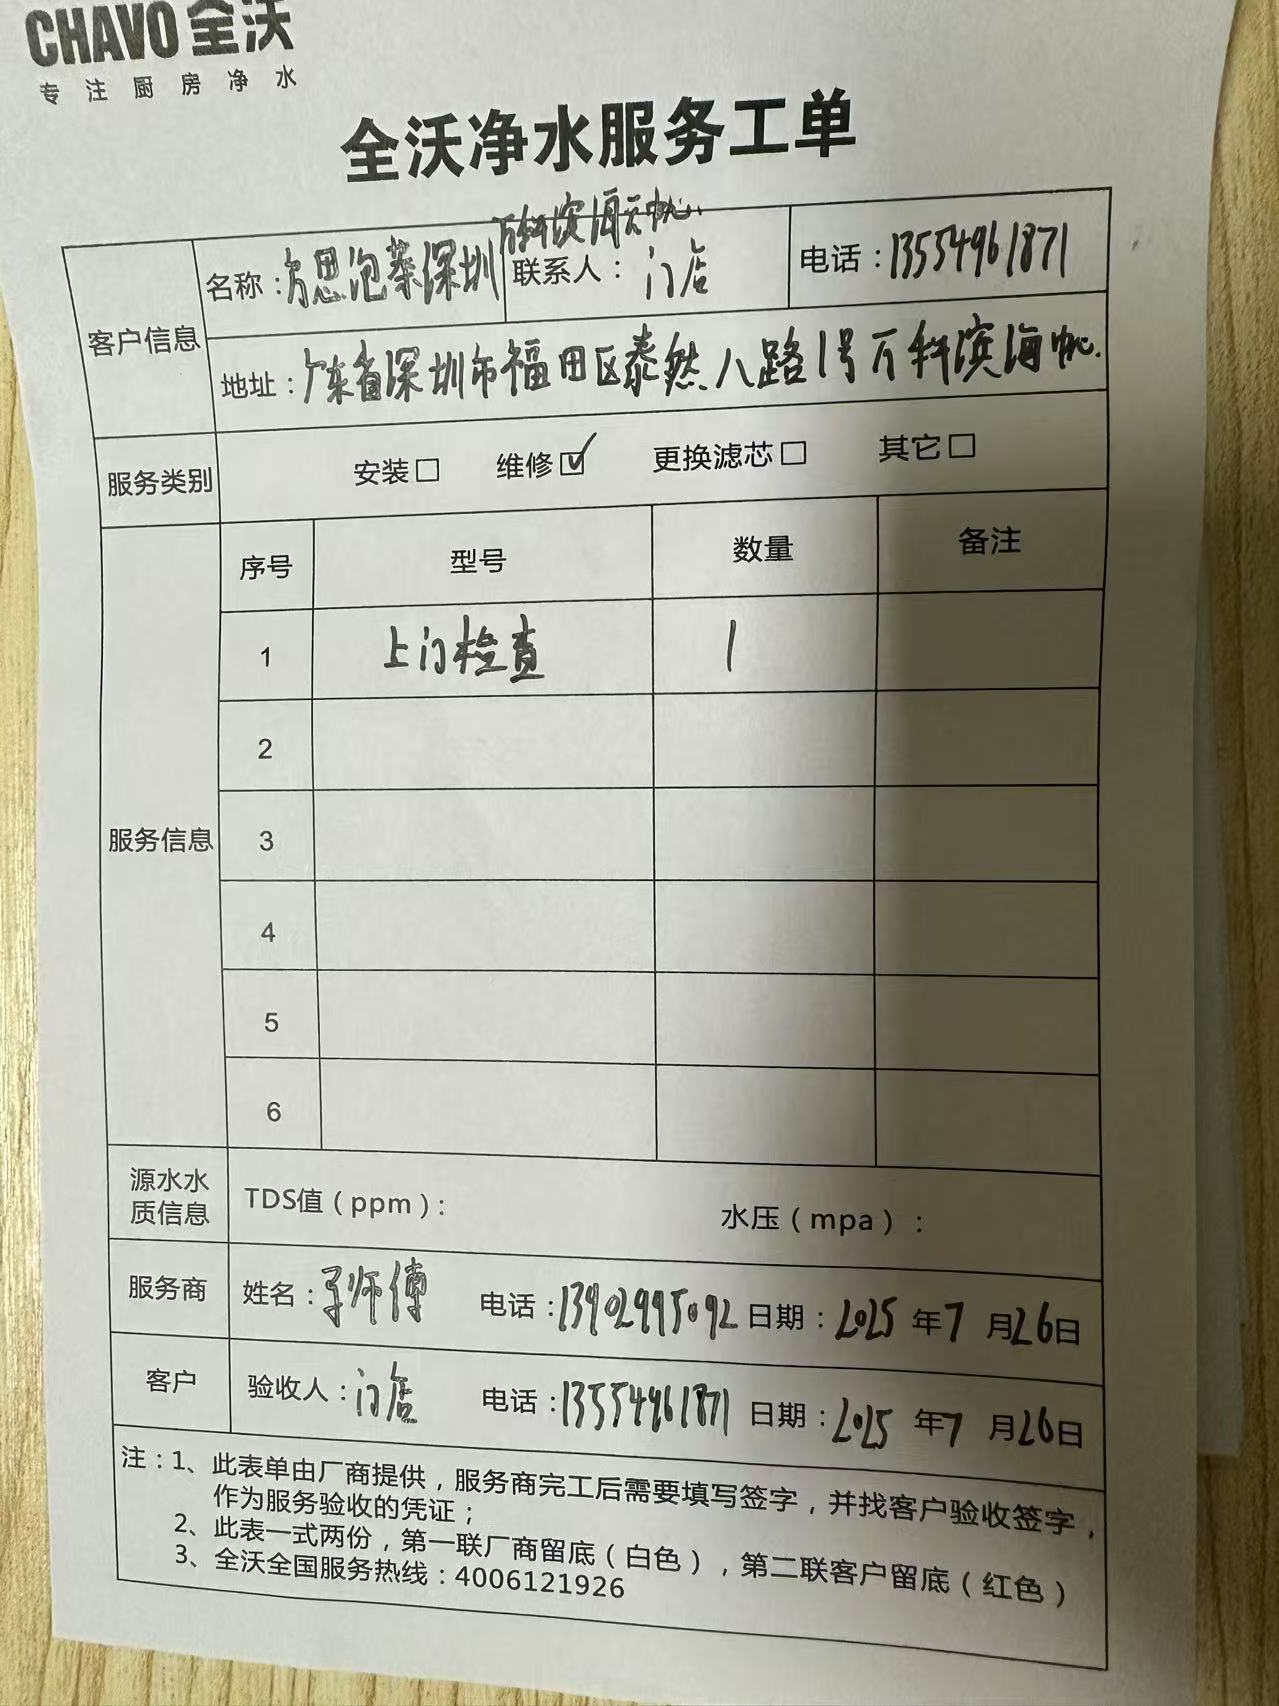 CHAVO 全沃
专注厨房净水
全沃净水服务工单
客户信息
名称：方思泡菜深圳万科滨海天帆
联系人：门店
电话：13554961871
地址：广东省深圳市福田区泰然八路1号万科滨海帆
服务类别
安装□ 维修☑ 更换滤芯□ 其它□
服务信息
序号 型号 数量 备注
1 上门检查 1
2
3
4
5
6
源水水质信息
TDS值（ppm）： 水压（mpa）：
服务商
姓名：师傅 电话：13902995092 日期：2025年7月26日
客户
验收人：门店 电话：13554961871 日期：2025年7月26日
注：1、此表单由厂商提供，服务商完工后需要填写签字，并找客户验收签字，
作为服务验收的凭证；
2、此表一式两份，第一联厂商留底（白色），第二联客户留底（红色）
3、全沃全国服务热线：4006121926